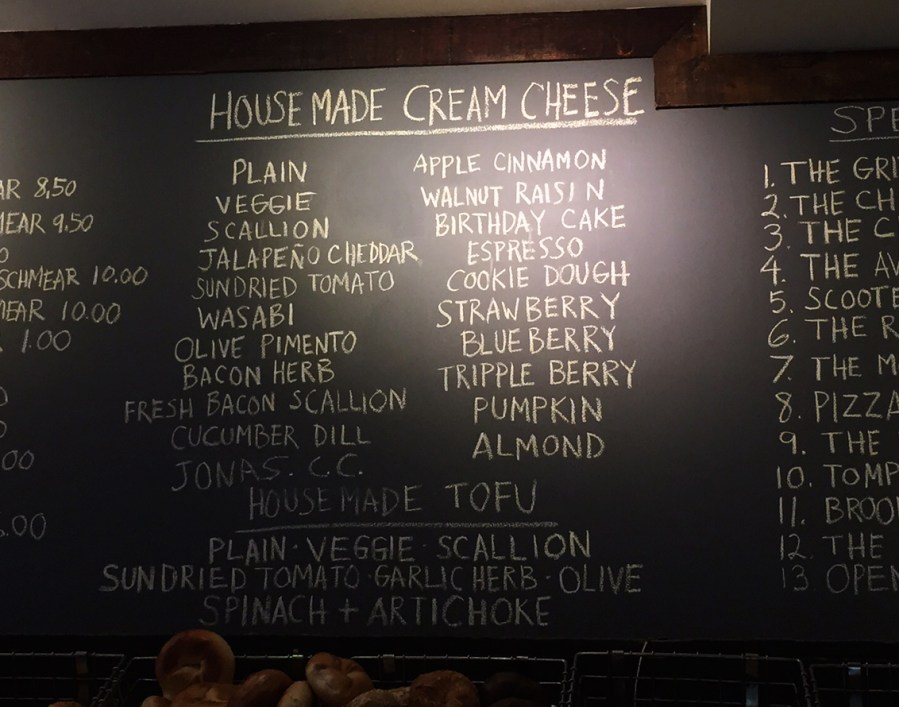 HOUSE MADE CREAM CHEESE
PLAIN
VEGGIE
SCALLION
JALAPEÑO CHEDDAR
SUNDRIED TOMATO
WASABI
OLIVE PIMENTO
BACON HERB
FRESH BACON SCALLION
CUCUMBER DILL
JONAS. C.C.
APPLE CINNAMON
WALNUT RAISIN
BIRTHDAY CAKE
ESPRESSO
COOKIE DOUGH
STRAWBERRY
BLUEBERRY
TRIPPLE BERRY
PUMPKIN
ALMOND
HOUSE MADE TOFU
PLAIN · VEGGIE · SCALLION
SUNDRIED TOMATO · GARLIC HERB · OLIVE
SPINACH + ARTICHOKE
AR 8,50
EAR 9.50
SCHMEAR 10.00
EAR 10.00
1.00
00
.00
SPE
1. THE GRI
2. THE CH
3. THE C
4. THE AV
5. SCOOTE
6. THE R
7. THE M
8. PIZZA
9. THE
10. TOMP
11. BROO
12. THE
13 OPEN